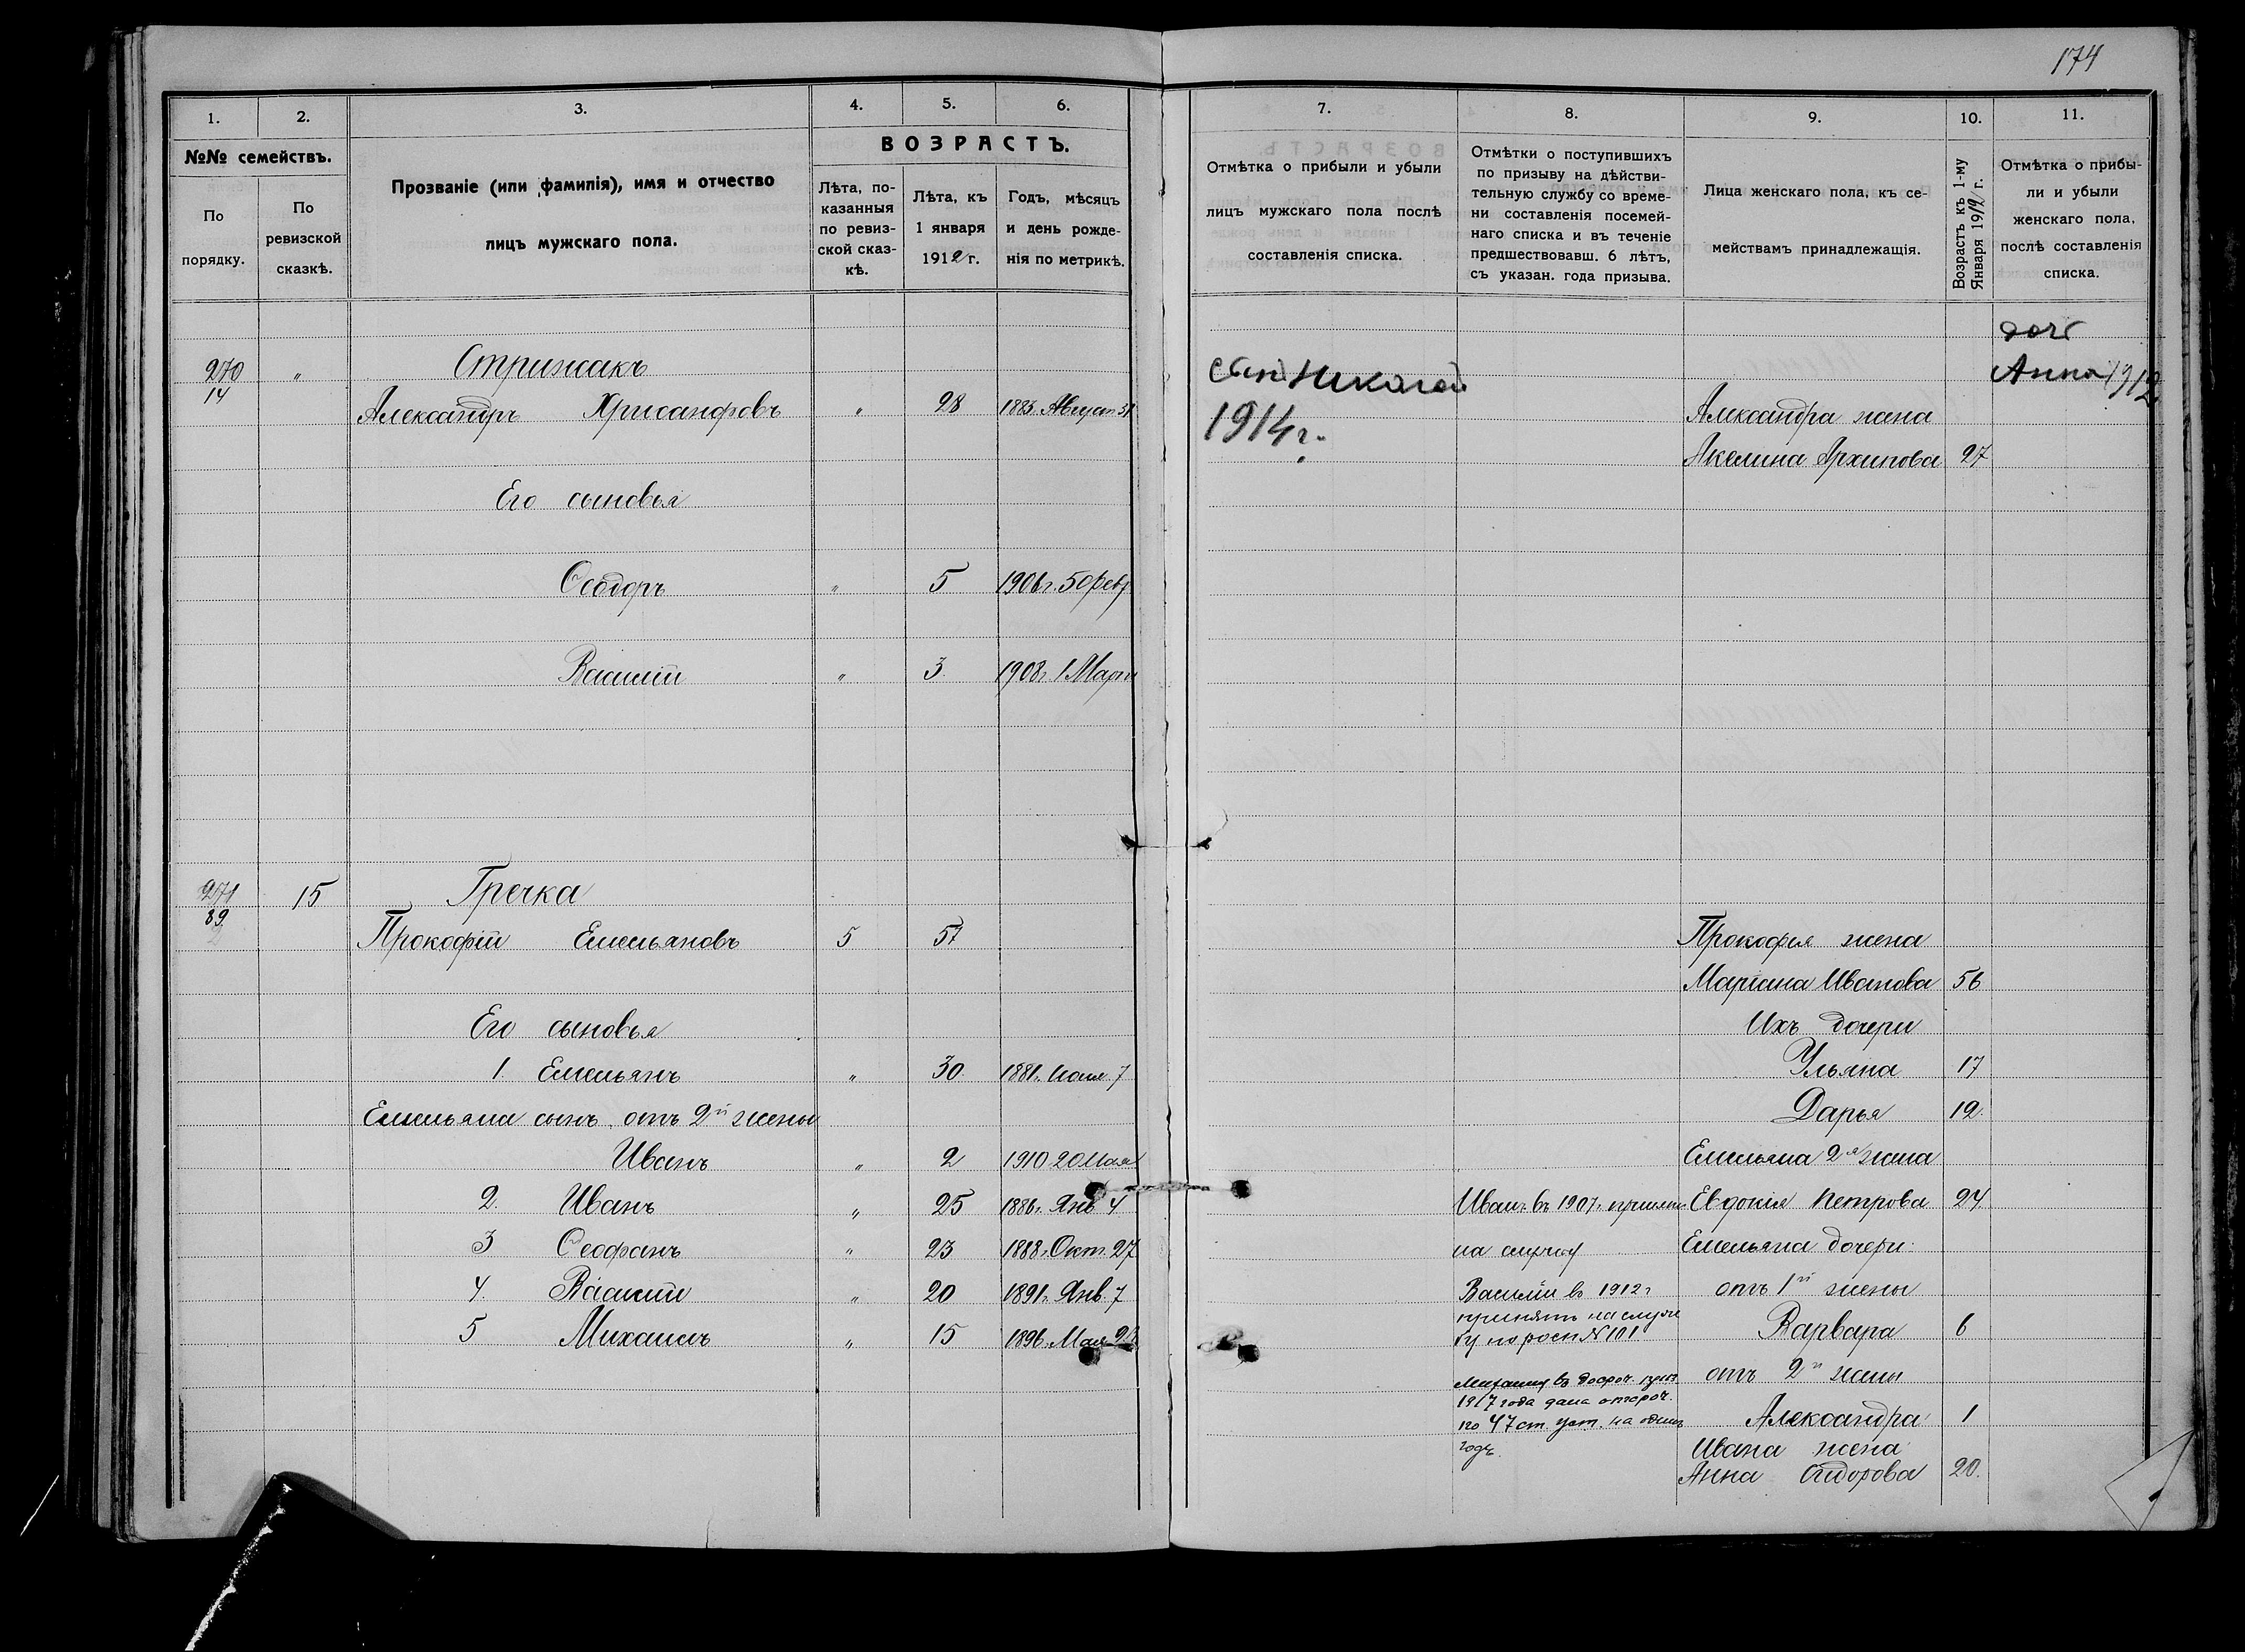 174
1. 2. 3. 4. 5. 6. 7. 8. 9. 10. 11.
№№ семействъ.
По порядку.
По ревизской сказкѣ.
Прозваніе (или фамилія), имя и отчество
лицъ мужскаго пола.
ВОЗРАСТЪ.
Лѣта, по-
казанныя
по ревиз-
ской сказ-
кѣ.
Лѣта, къ
1 января
1912 г.
Годъ, мѣсяцъ
и день рожде-
нія по метрикѣ.
Отмѣтка о прибыли и убыли
лицъ мужскаго пола послѣ
составленія списка.
Отмѣтки о поступившихъ
по призыву на дѣйстви-
тельную службу со време-
ни составленія посемей-
наго списка и въ теченіе
предшествовавш. 6 лѣтъ,
съ указан. года призыва.
Лица женскаго пола, къ се-
мействамъ принадлежащія.
Возрастъ къ 1-му
Января 1912 г.
Отмѣтка о прибы-
ли и убыли
женскаго пола,
послѣ составленія
списка.
доч
270 „ Стрижакъ сын Николай Анна 1912
14
Александръ Хрисанфовъ „ 28 1883. Август 31 1914 г. Александра жена
Акелина Архипова 27
Его сыновья
Ѳеодоръ „ 5 1906 г. 5 Февр
Василій „ 3 1908 г. 1 Март
271 15 Гречка
89
2
Прокофій Емельяновъ 5 57 Прокофія жена
Маріана Иванова 56
Его сыновья Ихъ дочери
1. Емельянъ „ 30 1881 г. 7 Ульяна 17
Емельяна сынъ отъ 2й жены Дарья 12
Иванъ „ 2 1910 20 Мая Емельяна 2я жена
2. Иванъ „ 25 1886 г. Янв 4 Иван. въ 1907 г. принятъ Евдокія Петрова 24
3 Ѳеофанъ „ 23 1888 г. Окт. 27 на службу Емельяна дочери
4 Василій „ 20 1891 г. Янв. 7 Василій въ 1912 г. отъ 1й жены
принятъ на служ
5 Михаилъ „ 15 1896 г. Мая бу по росп № 101 Варвара 6
Михаилу въ досроч. приз. отъ 2й жены
1917 года дана отсроч.
по 47 ст. уст. на одинъ Александра 1
годъ. Ивана жена
Анна Сидорова 20